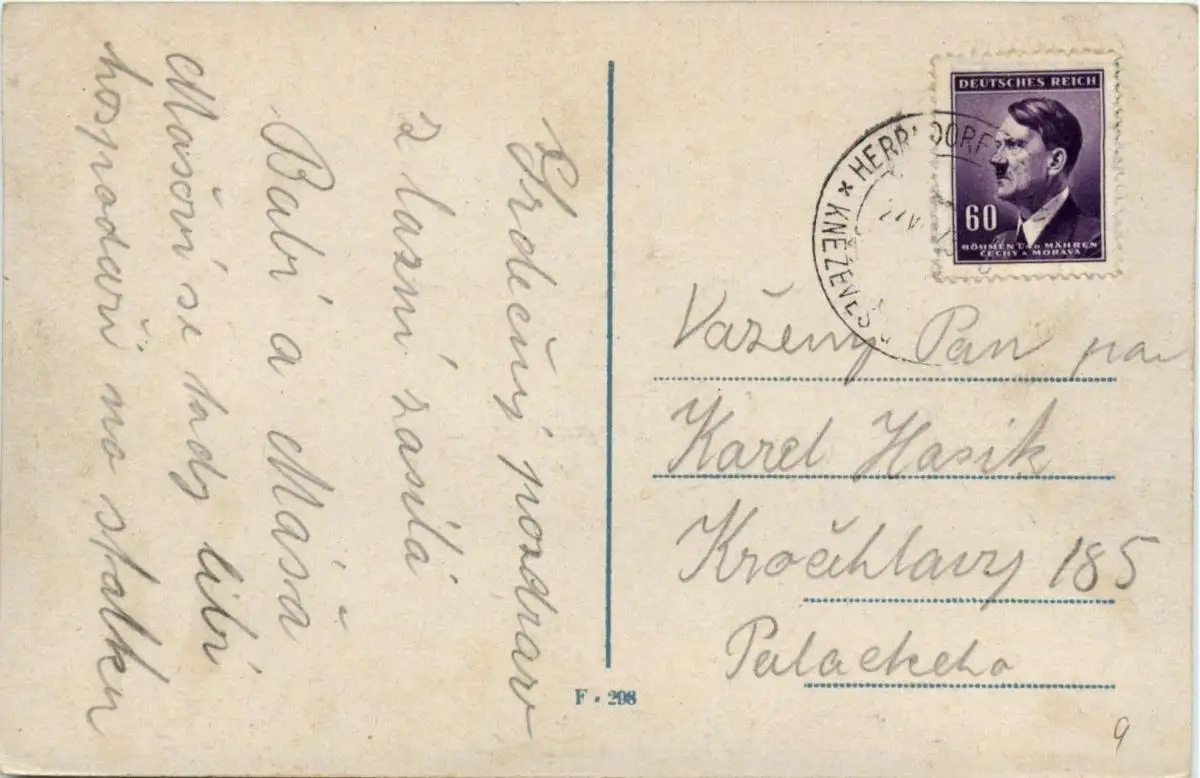 Srdečný pozdrav
z lázní zasílá
Babi a Máša
Mášovi se tady líbí
hospodaří na statku
DEUTSCHES REICH
60
BÖHMEN UND MÄHREN
ČECHY A MORAVA
* HERRNDORF
KNĚŽEVES
Vážený Pan pan
Karel Hasik
Kročehlavy 185
Palackeho
F • 298
9